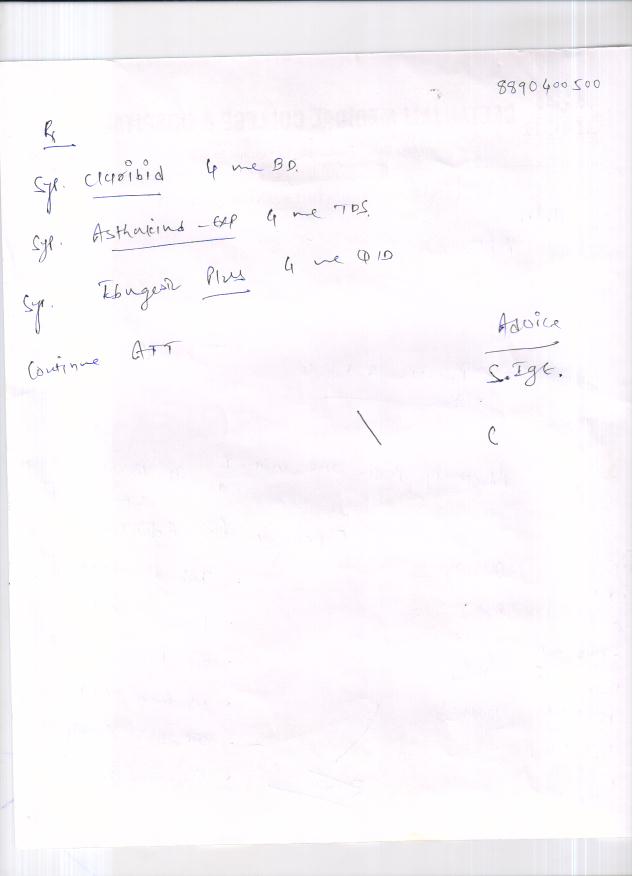 8890400500
Rx
Syp. Claribid 4 ml BD.
Syp. Asthakind - Exp 4 ml TDS.
Syp. Ibugesic Plus 4 ml QID
Continue ATT
Advice
S.IgE.